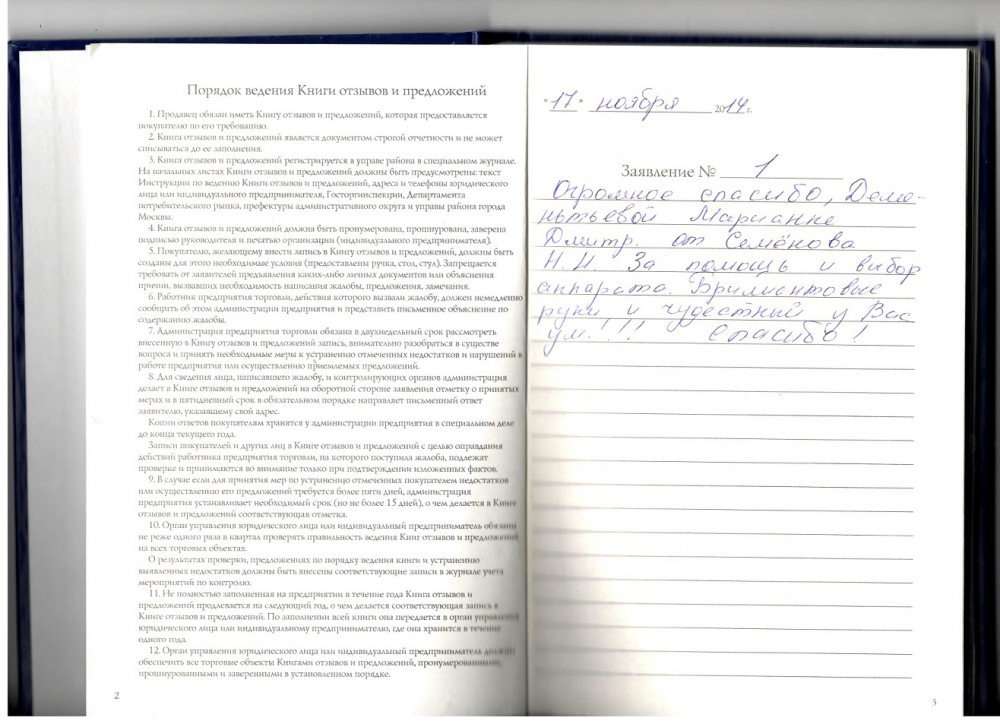 Порядок ведения Книги отзывов и предложений
1. Продавец обязан иметь Книгу отзывов и предложений, которая предоставляется
покупателю по его требованию.
2. Книга отзывов и предложений является документом строгой отчетности и не может
списываться до ее заполнения.
3. Книга отзывов и предложений регистрируется в управе района в специальном журнале.
На начальных листах Книги отзывов и предложений должны быть предусмотрены: текст
Инструкции по ведению Книги отзывов и предложений, адреса и телефоны юридического
лица или индивидуального предпринимателя, Госторгинспекции, Департамента
потребительского рынка, префектуры административного округа и управы района города
Москвы.
4. Книга отзывов и предложений должна быть пронумерована, прошнурована, заверена
подписью руководителя и печатью организации (индивидуального предпринимателя).
5. Покупателю, желающему внести запись в Книгу отзывов и предложений, должны быть
созданы для этого необходимые условия (предоставлены ручка, стол, стул). Запрещается
требовать от заявителей предъявления каких-либо личных документов или объяснения
причин, вызвавших необходимость написания жалобы, предложения, замечания.
6. Работник предприятия торговли, действия которого вызвали жалобу, должен немедленно
сообщить об этом администрации предприятия и представить письменное объяснение по
содержанию жалобы.
7. Администрация предприятия торговли обязана в двухнедельный срок рассмотреть
внесенную в Книгу отзывов и предложений запись, внимательно разобраться в существе
вопроса и принять необходимые меры к устранению отмеченных недостатков и нарушений в
работе предприятия или осуществлению приемлемых предложений.
8. Для сведения лица, написавшего жалобу, и контролирующих органов администрация
делает в Книге отзывов и предложений на оборотной стороне заявления отметку о принятых
мерах и в пятидневный срок в обязательном порядке направляет письменный ответ
заявителю, указавшему свой адрес.
Копии ответов покупателям хранятся у администрации предприятия в специальном деле
до конца текущего года.
Записи покупателей и других лиц в Книге отзывов и предложений с целью оправдания
действий работника предприятия торговли, на которого поступила жалоба, подлежат
проверке и принимаются во внимание только при подтверждении изложенных фактов.
9. В случае если для принятия мер по устранению отмеченных покупателем недостатков
или осуществлению его предложений требуется более пяти дней, администрация
предприятия устанавливает необходимый срок (но не более 15 дней), о чем делается в Книге
отзывов и предложений соответствующая отметка.
10. Орган управления юридического лица или индивидуальный предприниматель обязаны
не реже одного раза в квартал проверять правильность ведения Книг отзывов и предложений
на всех торговых объектах.
О результатах проверки, предложениях по порядку ведения книги и устранению
выявленных недостатков должны быть внесены соответствующие записи в журнале учета
мероприятий по контролю.
11. Не полностью заполненная на предприятии в течение года Книга отзывов и
предложений продлевается на следующий год, о чем делается соответствующая запись в
Книге отзывов и предложений. По заполнении всей книги она передается в орган управления
юридического лица или индивидуальному предпринимателю, где она хранится в течение
одного года.
12. Орган управления юридического лица или индивидуальный предприниматель должны
обеспечить все торговые объекты Книгами отзывов и предложений, пронумерованными,
прошнурованными и заверенными в установленном порядке.
2
"17" ноября 2014 г.
Заявление № 1
Огромное спасибо, Деме-
нтьевой Марианне
Дмитр. от Семёнова
Н.Н. За помощь и выбор
аппарата. Брилиантовые
руки и чудестний у Вас
ум!!! Спасибо!
3